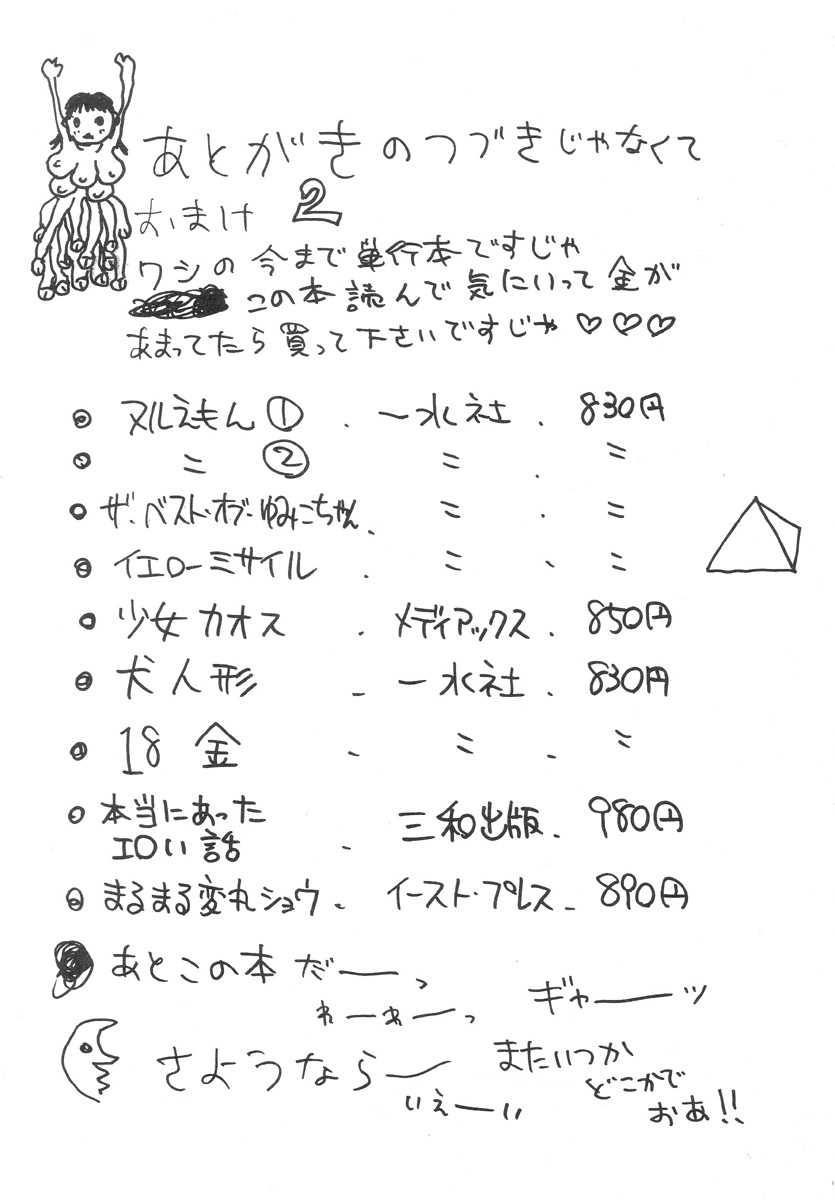 あとがきのつづきじゃなくて
おまけ 2
ワシの今まで単行本ですじゃ
この本読んで気にいって金が
あまってたら買って下さいですじゃ♡♡♡
◎ ヌルえもん① . 一水社 . 830円
◎ 〃 ② 〃 . 〃
◎ ザ・ベスト・オブ・ゆみこちゃん . 〃 . 〃
◎ イエローミサイル . 〃 . 〃
◎ 少女カオス . メディアックス . 850円
◎ 犬人形 . 一水社 . 830円
◎ 18金 . 〃 . 〃
◎ 本当にあった
エロい話 . 三和出版 . 980円
◎ まるまる変丸ショウ . イースト・プレス . 890円
あとこの本だーっ
わーわーっ
ギャーッ
さようならー
いえーい
またいつか
どこかで
おあ!!